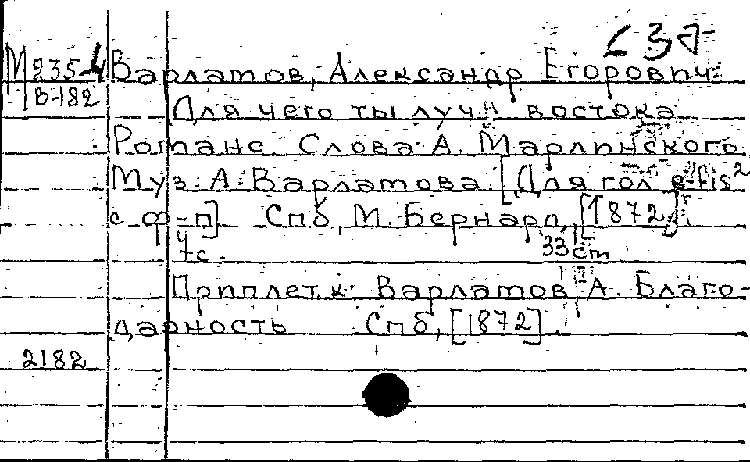 М 235-4 Варламов, Александр Егорович
В-182 Для чего ты луч востока
Романс. Слова А. Марлинского
Муз. А. Варламова. [Для гол. e-fis²
с ф-п] Спб, М. Бернард, [1872].
4 с. 33 cm
Приплет. к: Варламов А. Благо-
дарность Спб, [1872].
2182